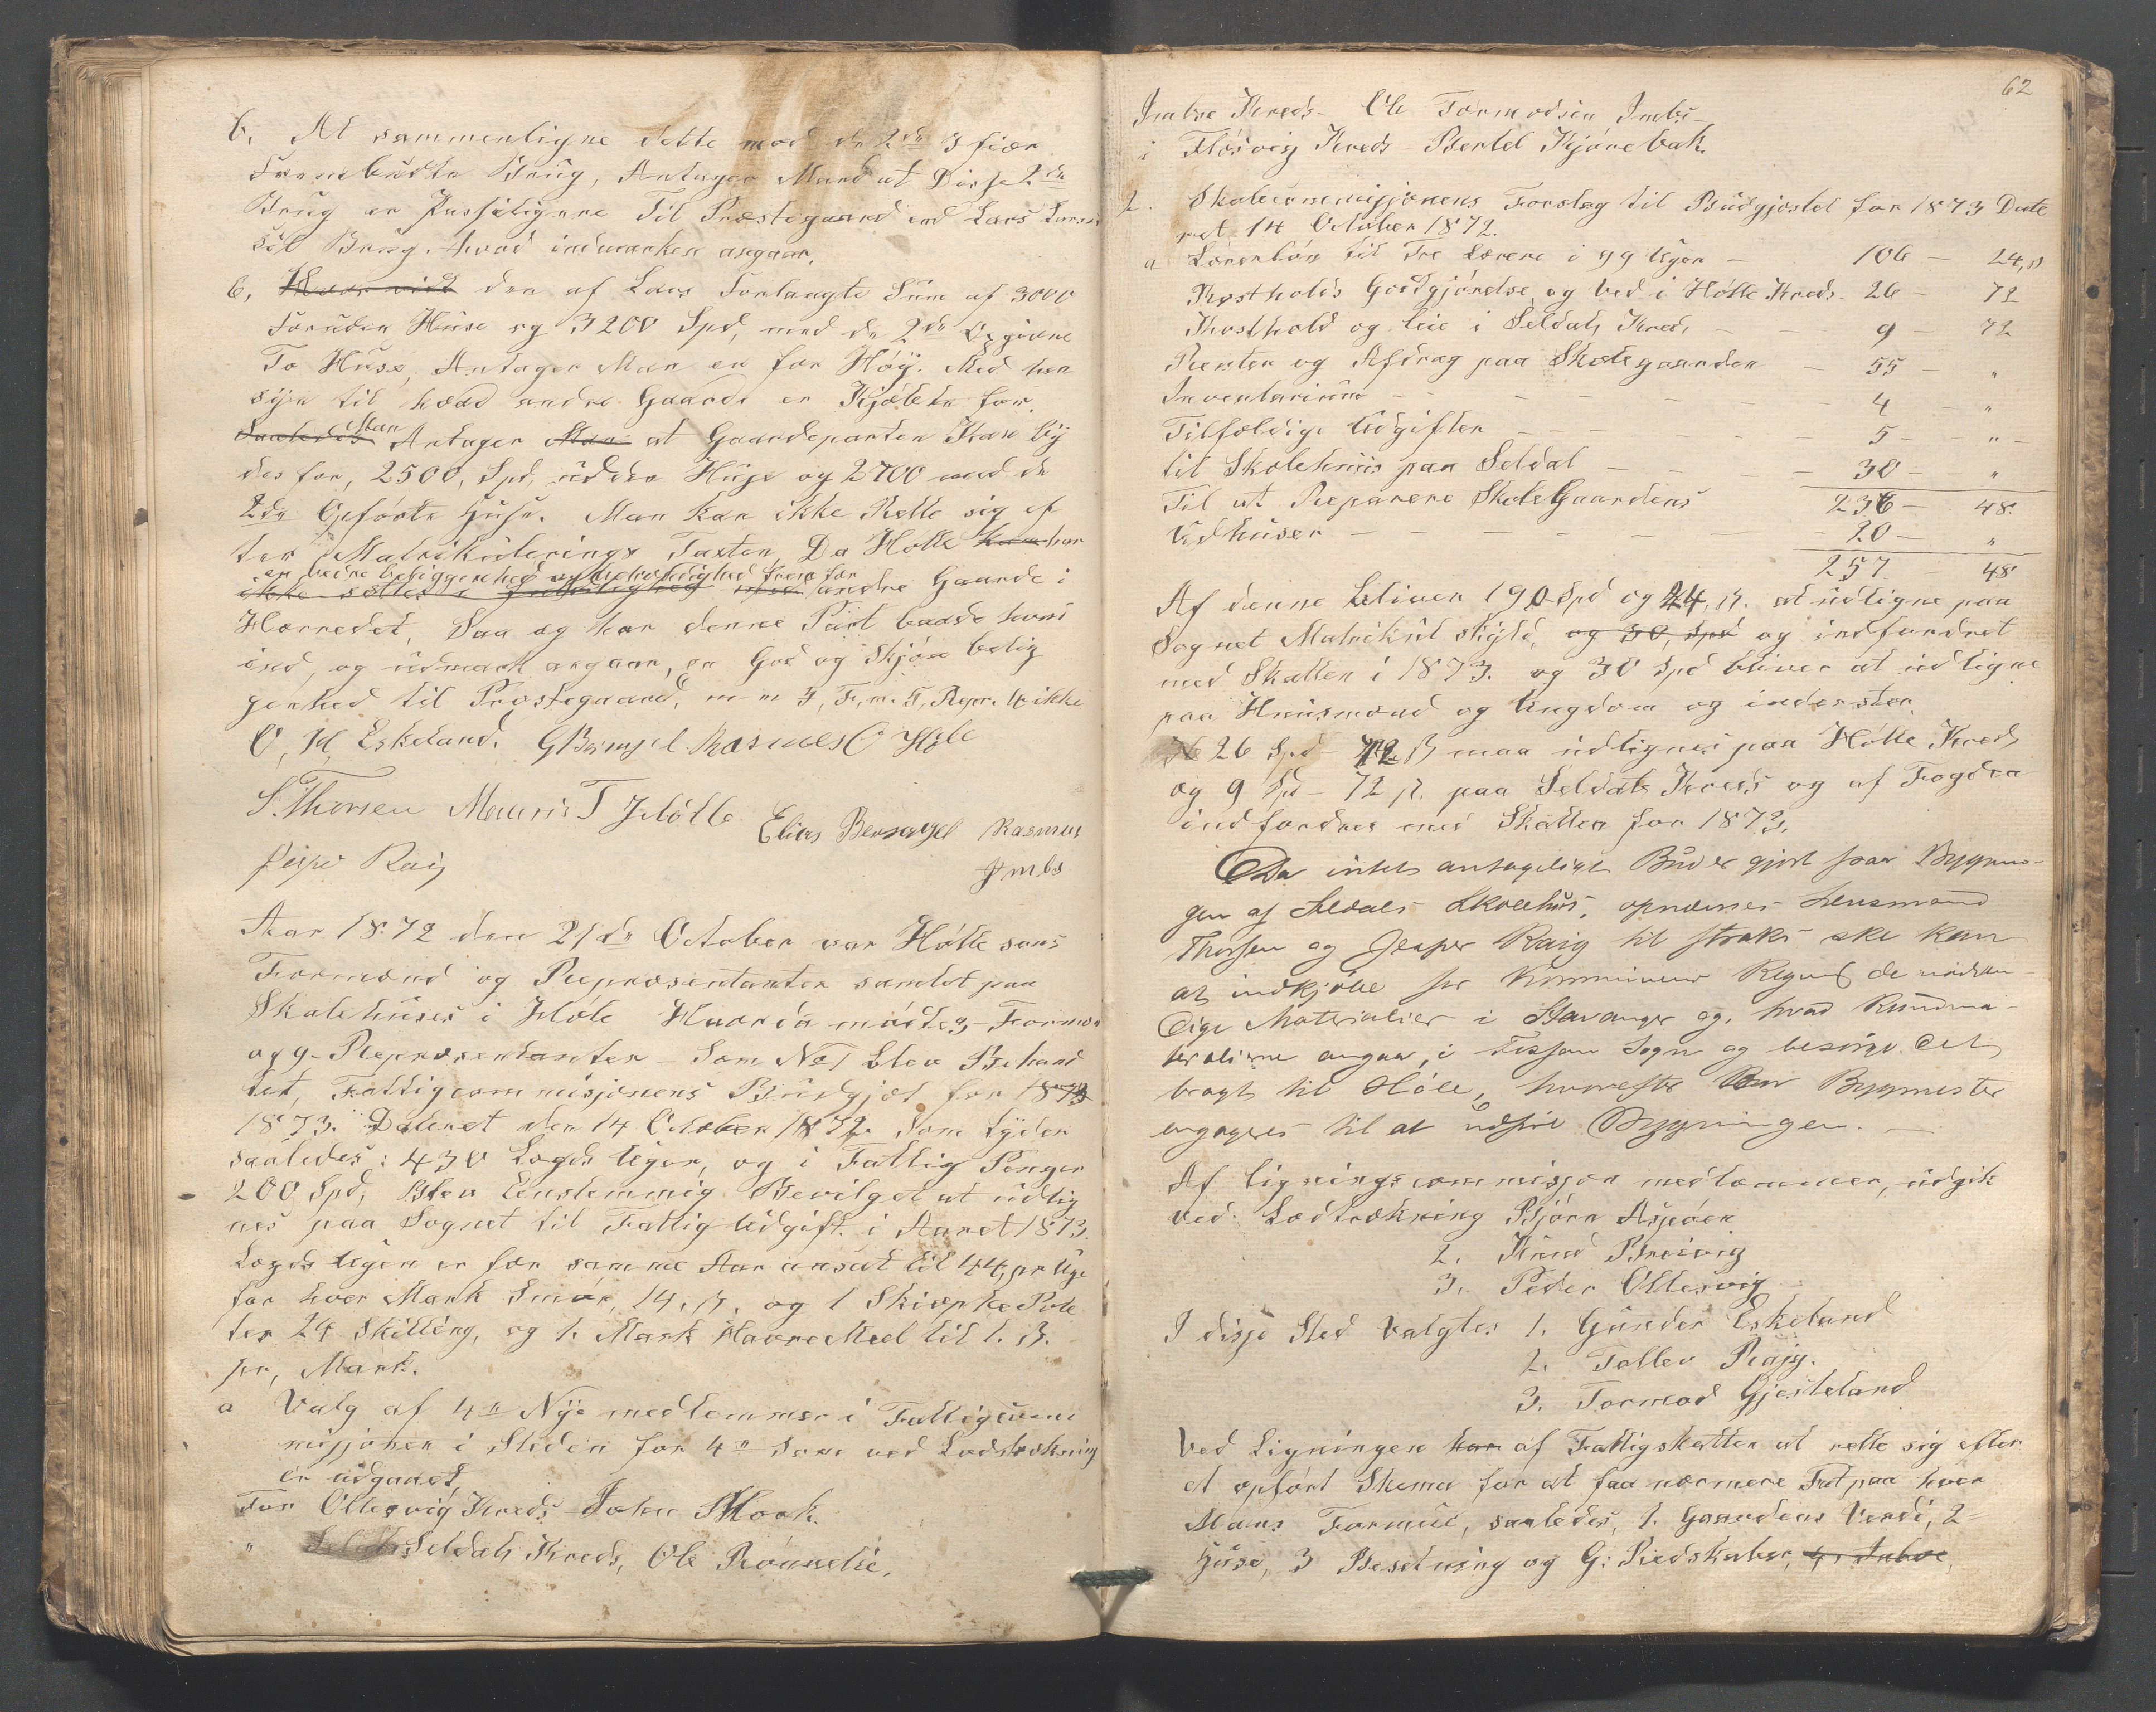 b, At sammenligne dette med de 2de 3 fiær
Brug, Antager Man at Disse 2de
Brug er til Præstegaard end Lars Larsen
sit Brug. hvad indmarken angaar.
6, den af Lars Forlangte Sum af 3000
Foruden Huse og 3200 Spd, med de 2de
To Huse, Antager Man er for Høÿ. Med hen
sÿn til hvad andre Gaarde er Kjøbte for,
Saaledes Man Antager Man at Gaardeparten Kan bÿ
des for, 2500, Spd, uden Huse og 2700 med de
2de Opførte Huse. Man Kan ikke Rette sig ef
ter Matrikulerings Taxten, Da Hølle har
en bedre beliggenhed frem for
andre Gaarde i
Herredet, Saa og har denne Part baade hvad
ind, og udmark angaar, en God og Skjøn belig
genhed til Præstegaard, m m 3, F, m. 5, Repr. 4 ikke
O, H, Eskeland. G Bersagel. Rasmus O Høle
S. Thorsen Mauris T Hølle Elias Bersagel Rasmus
Jesper Raig Imbs
Aar 1872 den 21de October var Hølle sons
Formænd og Repræsentanter samlet paa
Skolehuset i Høle Hvorda mødte 3 Formæn
og 9 Repræsentanter – Som No 1 blev Behand
let, Fattigcommisjonens Budgjet for 1873
1873. Dateret den 14 October 1872. Som Lÿder
saaledes: 430 Lægds Uger, og i Fattig Penger
200 Spd, Blev Eenstemmig Bevilget at udlig
nes paa Sognet til Fattig Udgift i Aaret 1873.
Lægds Ugen er for samme Aar ansat til 44, pr Uge
for hver Mark Smør, 14, ß, og 1 Skieppe Pote
ter 24 Skilling, og 1. Mark Havre Meel til 1. ß.
pr, Mark.
a Valg af 4re Nÿe medlemmer i Fattigcom
misjonen i Steden for 4re Som ved Lodtrækning
er udgaaet,
For Ollesvig Kreds John Mook.
" Seldals Kreds, Ole Rønnelie.
62
Imbse Kreds – Ole Tormodsen Imbs –
i Fløsvig Kreds – Bertel Kjørebak.
2. Skolecommisjonens Forslag til Budgjettet for 1873 Date
ret 14 October 1872.
a Lærerløn til Tre Lærere i 99 Uger – 106 – 24, ß
Kostholds Godtgjørelse og Ved i Hølle Kreds – 26 72
Kosthold og leie i Seldals Kreds – – 9 – 72
Renter og Afdrag paa Skolegaarden – 55 – "
Inventarium – – – – – 4 – "
Tilfældige Udgifter – – – – 5 – " –
til Skolehuus paa Seldal – – – 30 – "
Til at Reparere Skole Gaardens 236 – 48.
Vedhuser – – – – – – 20 – "
257 – 48
Af denne bliver 190 Spd og 24, ß. at udligne paa
Sognet Matrikul skÿld, og 30, Spd og indfordret
med Skatten i 1873. og 30 Spd bliver at udligne
paa Huusmænd og Ungdom og inderster,
26 Spd – 72 ß maa udlignes paa Hølle Kreds
og 9 Spd – 72 ß. paa Seldals Kreds og af Fogden
indfordres med Skatten for 1873.
Da intet antageligt Bud er gjort paa Bygnin-
gen af Seldals Skolehus, opnævnes Lensmand
Thorsen og Jesper Raig til straks ske kan
at indkjøbe for Kommunens Regning de nødven-
dige Materialier i Stavanger og, hvad Rundma-
terialierne angaa, i Fossan Sogn og besørge det
bragt til Høle, hvorefter Bygmester
engageres til at udføre Bygningen. –
Af ligningscommissjon medlemmer, udgik
ved Lodtrækning Bjørn Aspøen
2. Knud Breivig
3. Peder Ollesvig
I disse Sted Valgtes 1. Gunder Eskeland
2. Tollev Raig.
3. Tormod Gjesteland
Ved Ligningen har af Fattigskatten at rette sig efter
et opført Skema for at faa nærmere Fat paa hver
Mans Formue, saaledes, 1. Gaardens Verdi, 2 –
Huse, 3 Besetning og G: Redskaber, 4, Inboe,